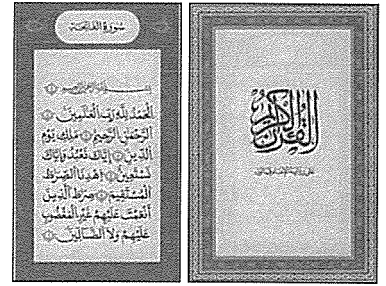 سورة الفاتحة
بسم الله الرحمن الرحيم
الْحَمْدُ لِلَّهِ رَبِّ الْعَٰلَمِينَ
الرَّحْمَٰنِ الرَّحِيمِ مَلِكِ يَوْمِ
الدِّينِ إِيَّاكَ نَعْبُدُ وَإِيَّاكَ
نَسْتَعِينُ اهْدِنَا الصِّرَٰطَ
الْمُسْتَقِيمَ صِرَٰطَ الَّذِينَ
أَنْعَمْتَ عَلَيْهِمْ غَيْرِ الْمَغْضُوبِ
عَلَيْهِمْ وَلَا الضَّالِّينَ
القرآن الكريم
على رواية الإمام قالون